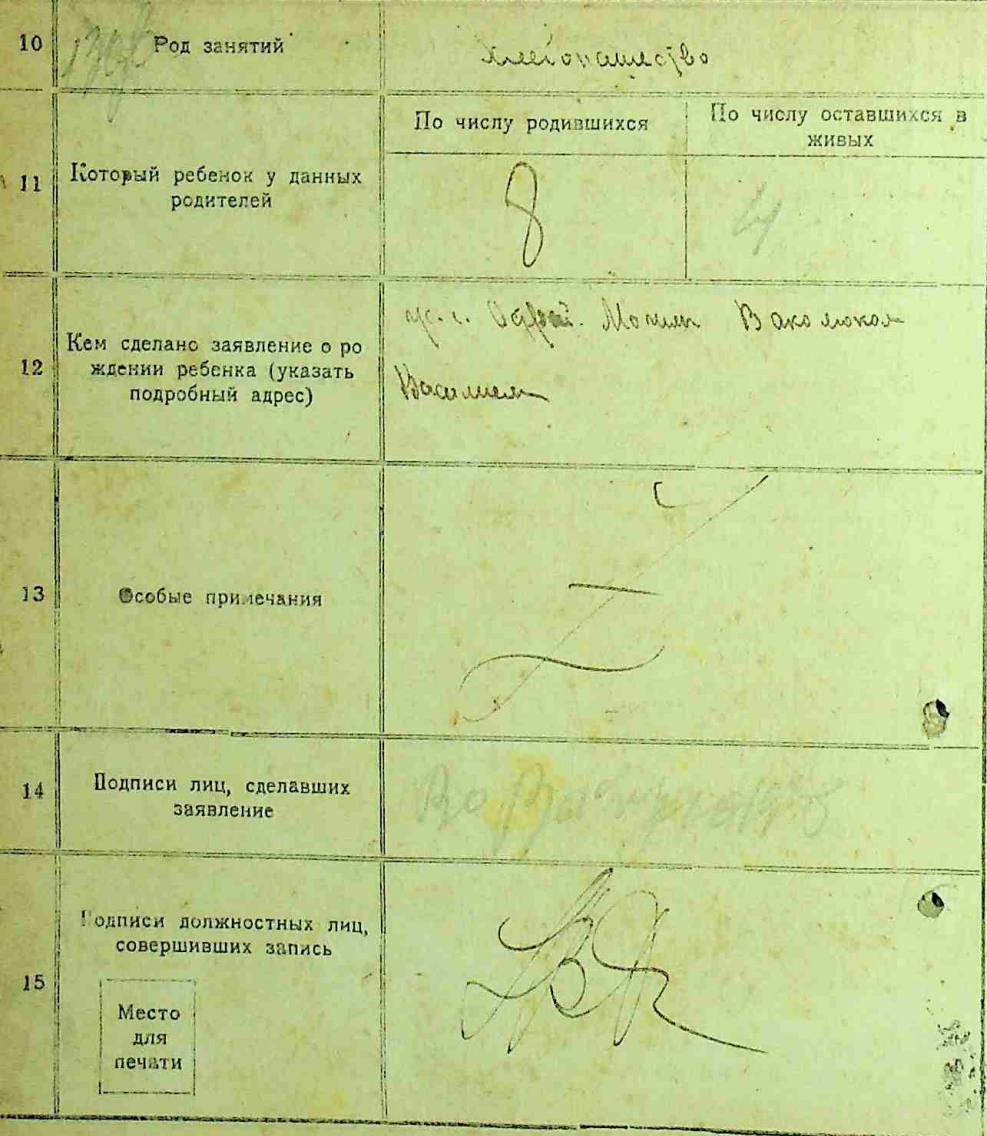 10 Род занятий хлебопашество
По числу родившихся
По числу оставшихся в
живых
11 Который ребенок у данных
родителей
8 4
12 Кем сделано заявление о ро
ждении ребенка (указать
подробный адрес)
Василием
13 Особые примечания
14 Подписи лиц, сделавших
заявление
15 Подписи должностных лиц,
совершивших запись
Место
для
печати